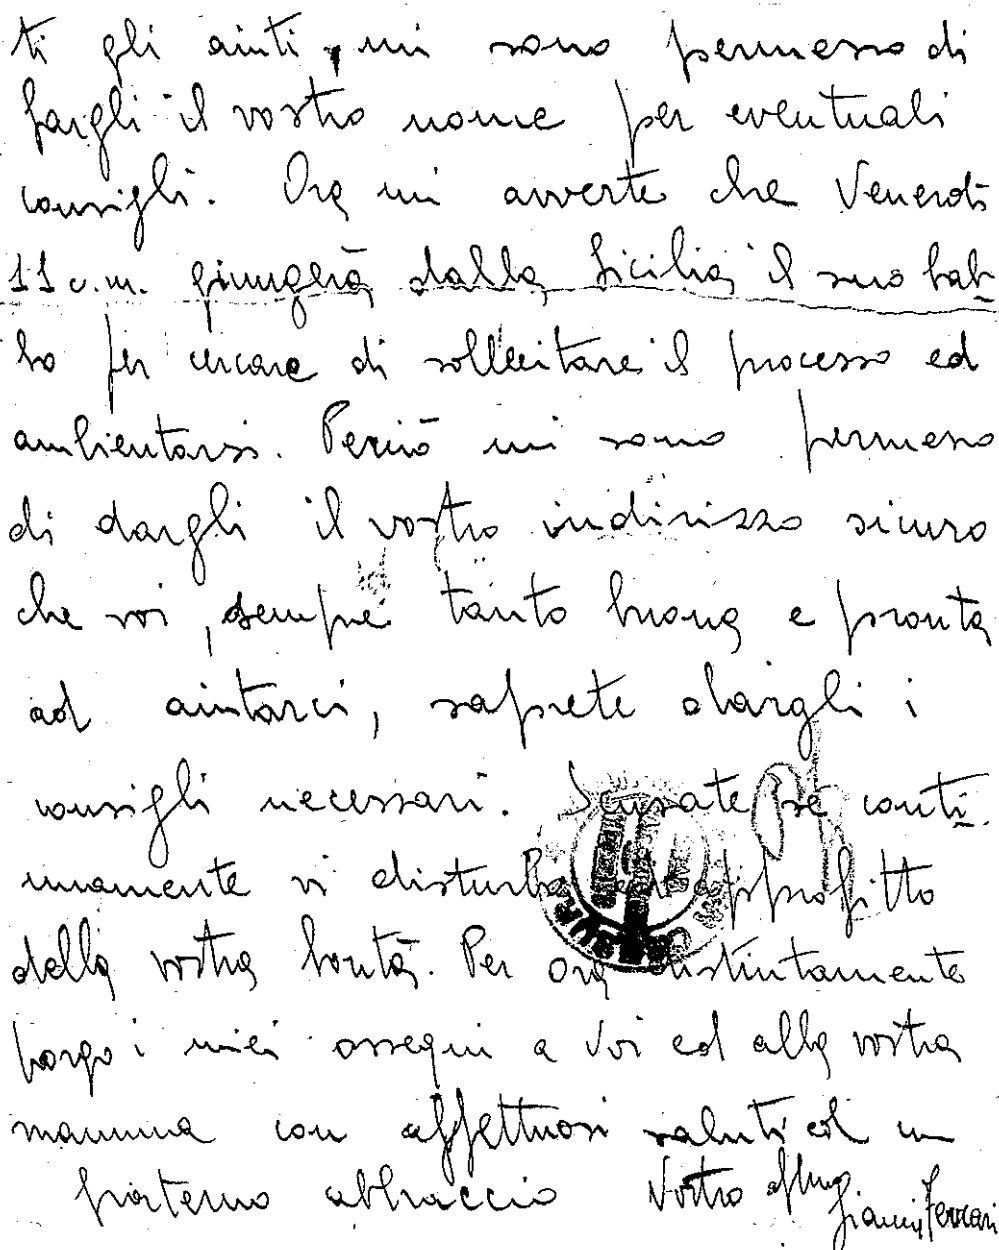 ti gli aiuti, mi sono permesso di
fargli il vostro nome per eventuali
consigli. Ora mi avverte che Venerdì
11 c.m. giungerà dalla Sicilia il suo bab-
bo per cercare di sollecitare il processo ed
ambientarsi. Perciò mi sono permesso
di dargli il vostro indirizzo sicuro
che voi, sempre tanto buona e pronta
ad aiutarci, saprete dargli i
consigli necessari. Scusate se conti-
nuamente vi disturbo ed approfitto
della vostra bontà. Per ora distintamente
porgo i miei ossequi a Voi ed alla vostra
mamma con affettuosi saluti ed un
fraterno abbraccio Vostro aff.mo
Gianni Ferrari